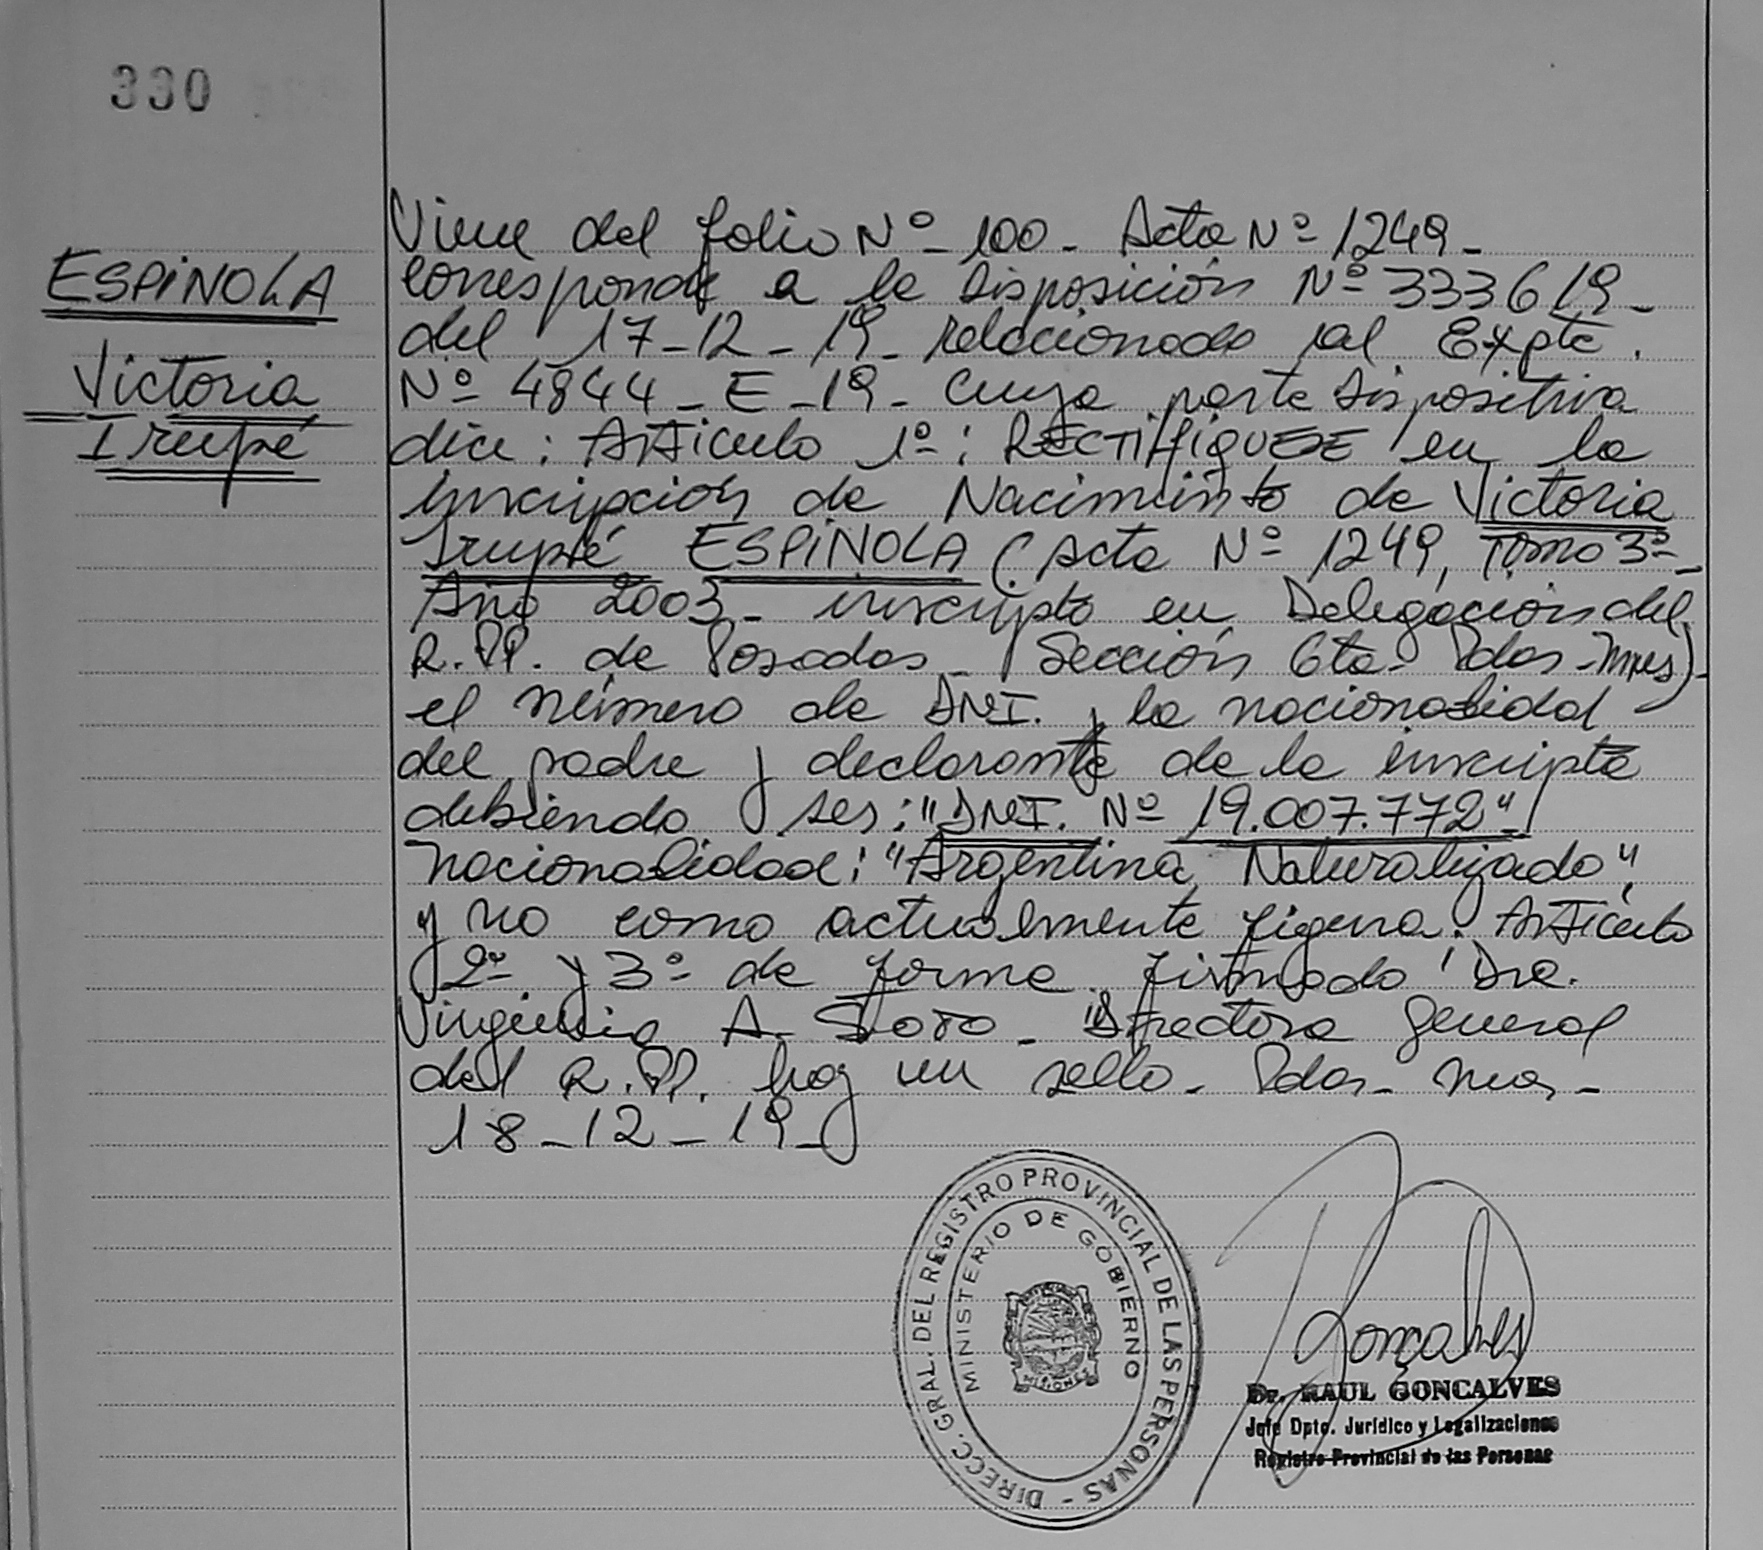 330
ESPINOLA
Victoria
Irupé
Viene del folio Nº 100 - Acta Nº 1249 -
corresponde a la Disposición Nº 3336/19 -
del 17-12-19 - relacionado al Expte.
Nº 4844 - E - 19 - cuya parte Dispositiva
dice: Artículo 1º: RECTIFIQUESE en la
inscripción de Nacimiento de Victoria
Irupé ESPINOLA (Acta Nº 1249, Tomo 3º -
Año 2003 - inscripta en Delegación del
R.PP. de Posadas - Sección 6ta - Pdas - Mnes) -
el número de DNI. y la nacionalidad
del padre y declarante de la inscripta
debiendo ser: "DNI. Nº 19.007.772"
nacionalidad: "Argentina Naturalizado",
y no como actualmente figura. Artículo
2º y 3º de forma. firmado: Dra.
Virginia A. - Directora General
del R.PP. hay un sello - Pdas - Mnes -
18-12-19 -
DIRECC. GRAL. DEL REGISTRO PROVINCIAL DE LAS PERSONAS -
MINISTERIO DE GOBIERNO
MISIONES
Gonçalves
Dr. RAUL GONCALVES
Jefe Dpto. Jurídico y Legalizaciones
Registro Provincial de las Personas